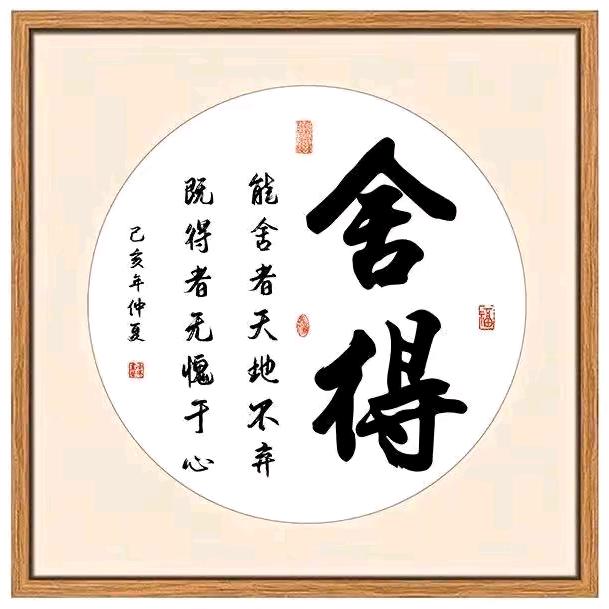 舍得
能舍者天地不弃
既得者无愧于心
己亥年仲夏
福